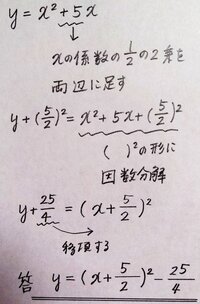 y = x² + 5x
↓
xの係数の1/2の2乗を
両辺に足す
y + (5/2)² = x² + 5x + (5/2)²
( )²の形に
因数分解
y + 25/4 = (x + 5/2)²
移項する
答 y = (x + 5/2)² - 25/4